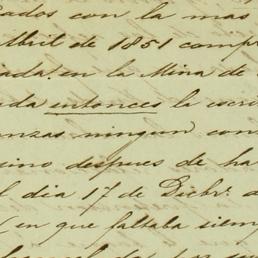 cados con la mas
Abril de 1851 comp
iada. en la Mina de
da entonces la escri
anzas ningun con
sino despues de ha
l dia 17 de Dicbr. a
(en que faltaba siem